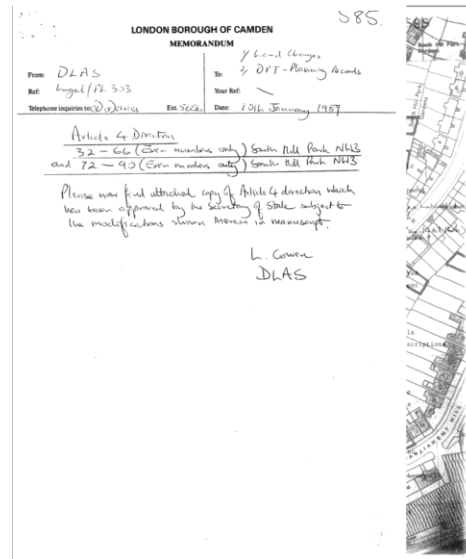 585.
LONDON BOROUGH OF CAMDEN
MEMORANDUM
From: DLAS
Ref: Legal/PL 303
Telephone inquiries to: D Davies Ext.
To: 1/ Land Charges
2/ DPT - Planning Records
Your Ref:
Date: 10th January 1989
Article 4 Direction
32 - 66 (Even numbers only) South Hill Park NW3
and 72 - 90 (Even numbers only) South Hill Park NW3
Please now find attached copy of Article 4 direction which
has been approved by the Secretary of State subject to
the modifications shown thereon in manuscript.
L. Cowen
DLAS